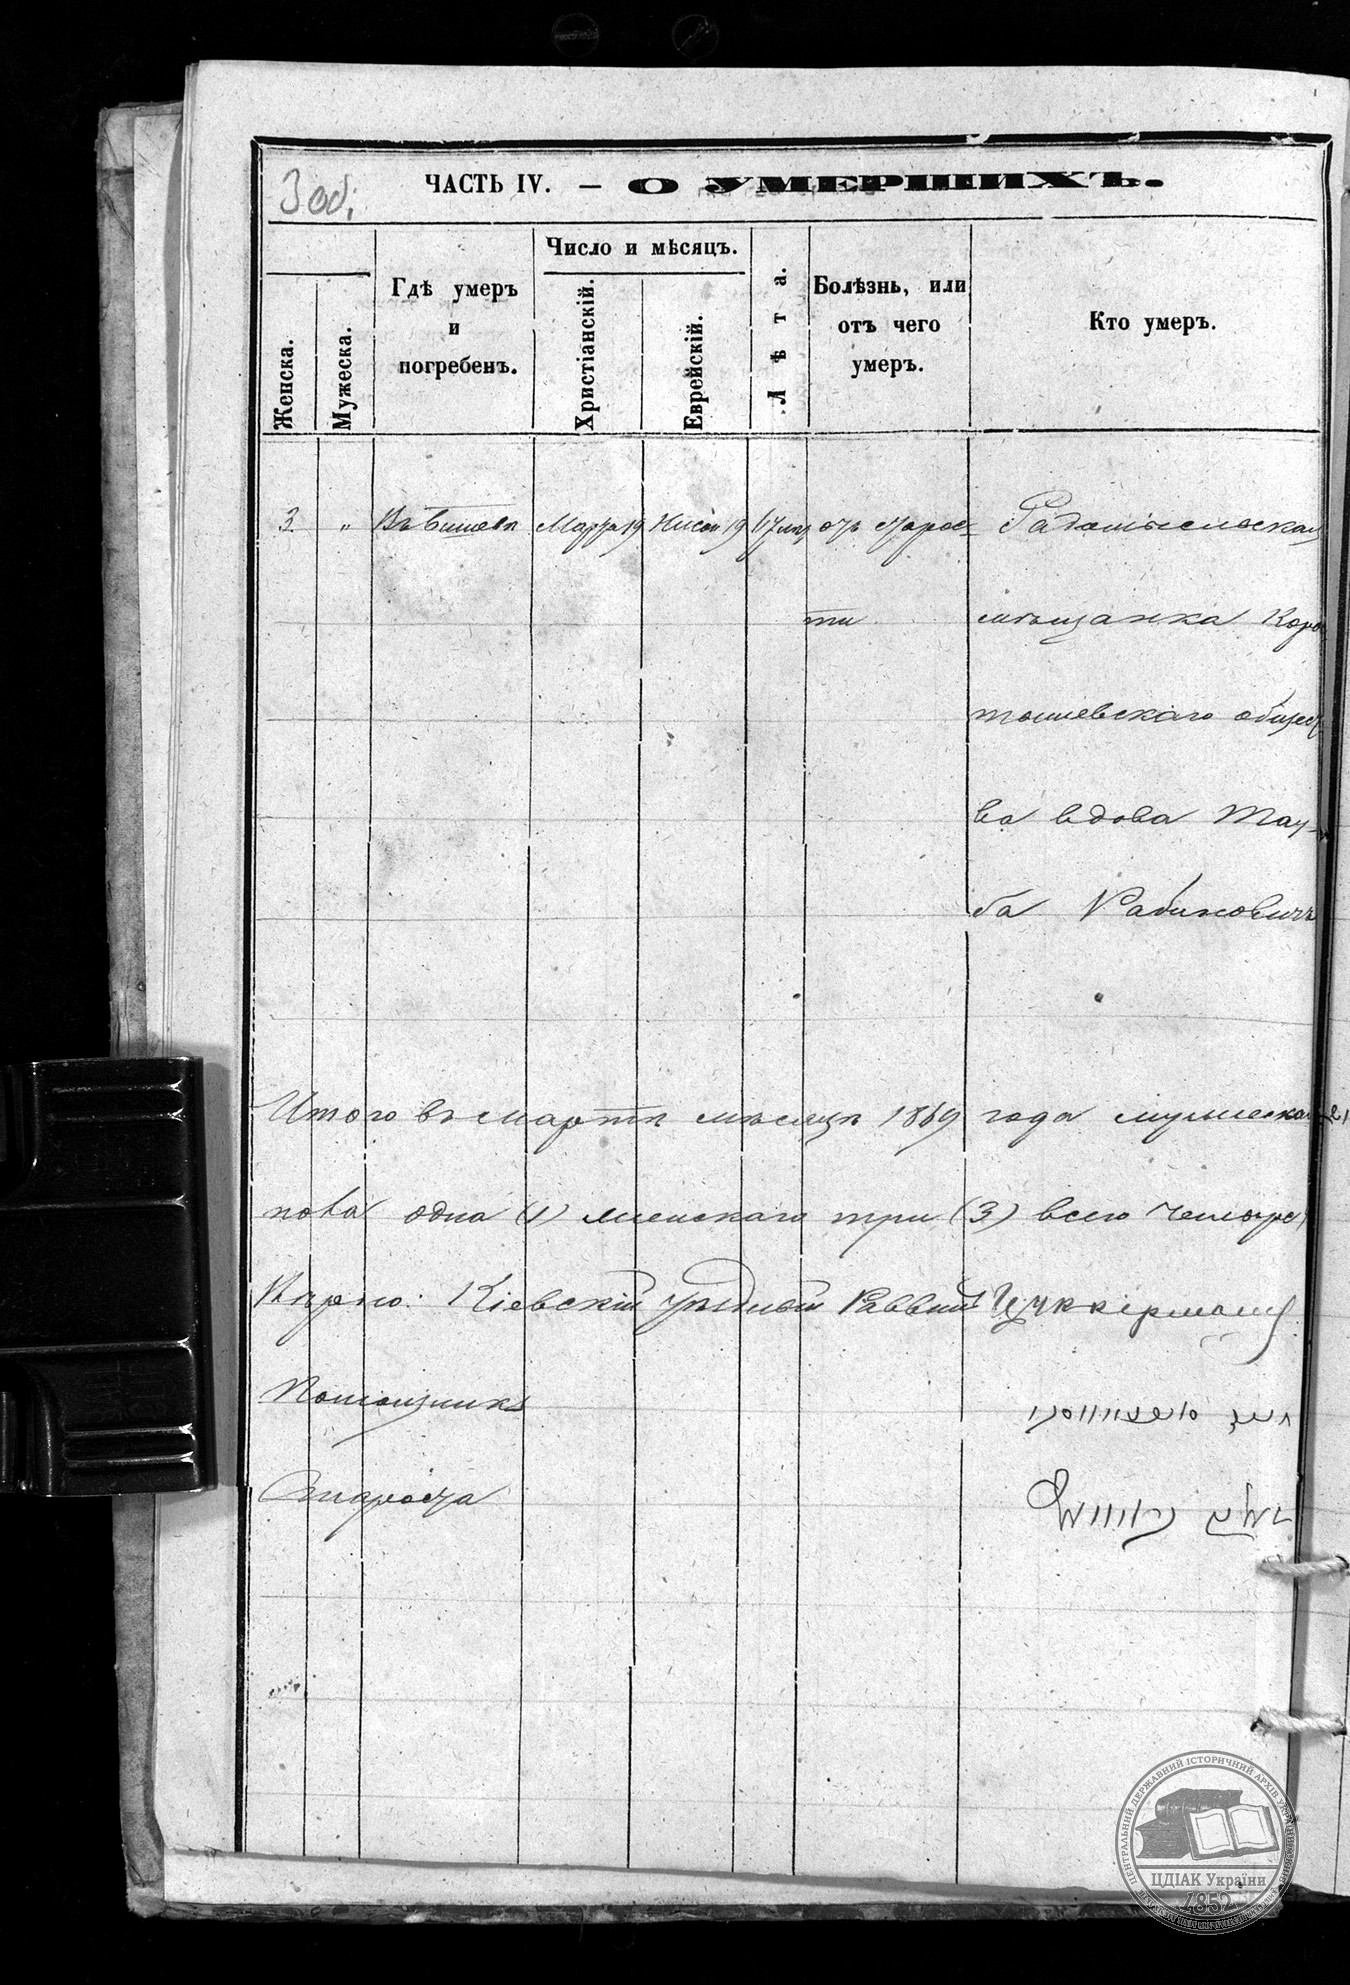 3 об.
ЧАСТЬ IV. — О УМЕРШИХЪ.
Женска.
Мужеска.
Гдѣ умеръ
и
погребенъ.
Число и мѣсяцъ.
Христіанскій.
Еврейскій.
Лѣта.
Болѣзнь, или
отъ чего
умеръ.
Кто умеръ.
3 " Марта 19 Нисон 19 отъ старос- Радомысльская
ти мѣщанка Коро
тышевскаго общест
ва вдова Тау-
ба Рабиновичъ
Итого въ мартѣ мѣсяцѣ 1869 года мужеска
пола одна (1) женскаго три (3) всего четыре
Вѣрно: Кіевскій уѣздный Раввинъ Цуккерманъ
Помощникъ
Староста
ЦЕНТРАЛЬНИЙ ДЕРЖАВНИЙ ІСТОРИЧНИЙ АРХІВ УКРАЇНИ
ЦДІАК України
1852